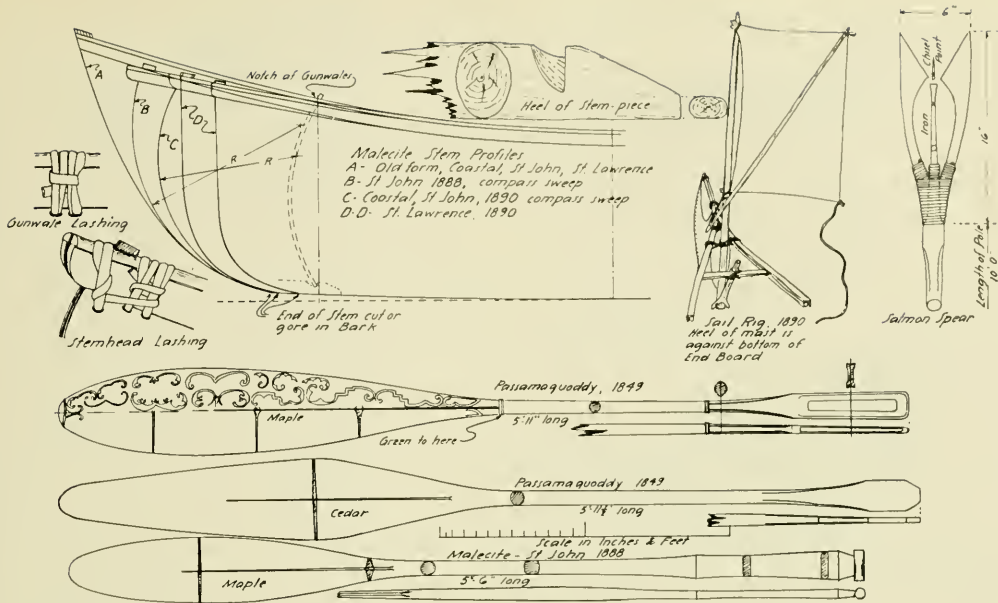 A
B
C
D
R
R
Notch of Gunwales
Heel of Stem-piece
Malecite Stem Profiles
A- Old form, Coastal, St John, St. Lawrence
B- St John 1888, compass sweep
C- Coastal, St John, 1890 compass sweep
D-D- St. Lawrence, 1890
Gunwale Lashing
Stemhead Lashing
End of Stem cut or
gore in Bark
Sail Rig, 1890
Heel of mast is
against bottom of
End Board
6"
Chisel
Point
Iron
16"
Length of Pole
10'0"
Salmon Spear
Passamaquoddy, 1849
Maple
5'11" long
Green to here
Passamaquoddy 1849
Cedar
5'11½" long
Scale in Inches & Feet
Malecite - St John 1888
Maple
5'-6" long